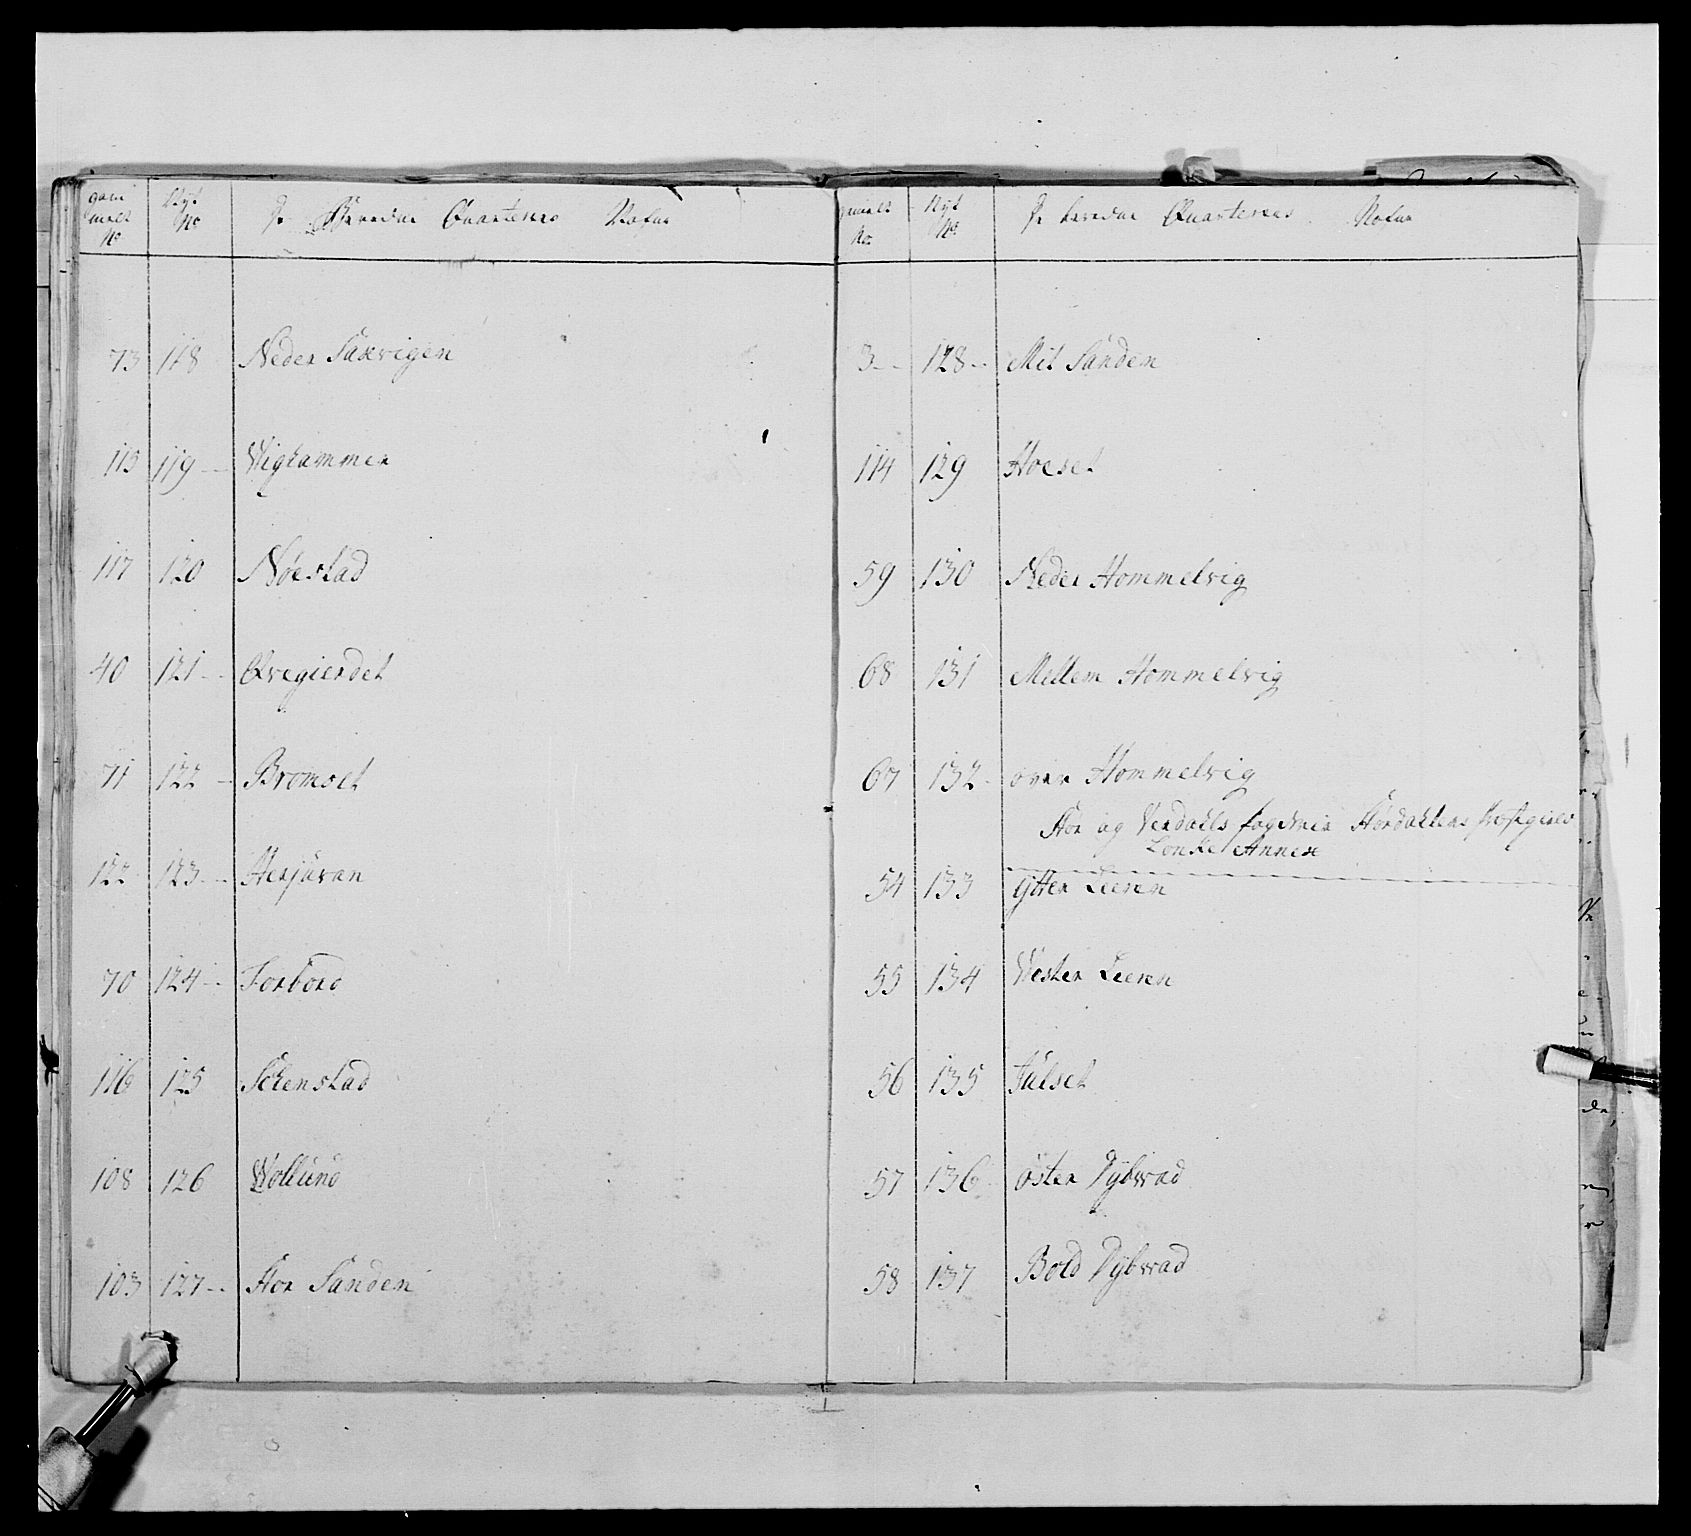 gam
melt
No
Nyt
No
Qvarterers Nafne
73 118 Neder Saxvigen
115 119 -- Vighammer
117 120 Nøestad
40 121 -- Qvegierdet
71 122 - Bromset
122 123 -- Hersjøran
70 124 -- Forbord
116 125 Schenstad
108 126 Vollund
103 127 -- Stor Sanden
melt
No
Nyt
No.
Qvarterers Nafne
3 -- 128 -- Mit Sanden
114 129 Hoeset
59 130 Neder Hommelvig
68 131 Mellem Hommelvig
67 132 - over Hommelvig
Stør og Verdahls fogderie Størdahlens
Lonke Annex
54 133 ytter Leeren
55 134 Vester Leeren
56 135 Julset
57 136 øster Dybvad
58 137 Bold Dybvad